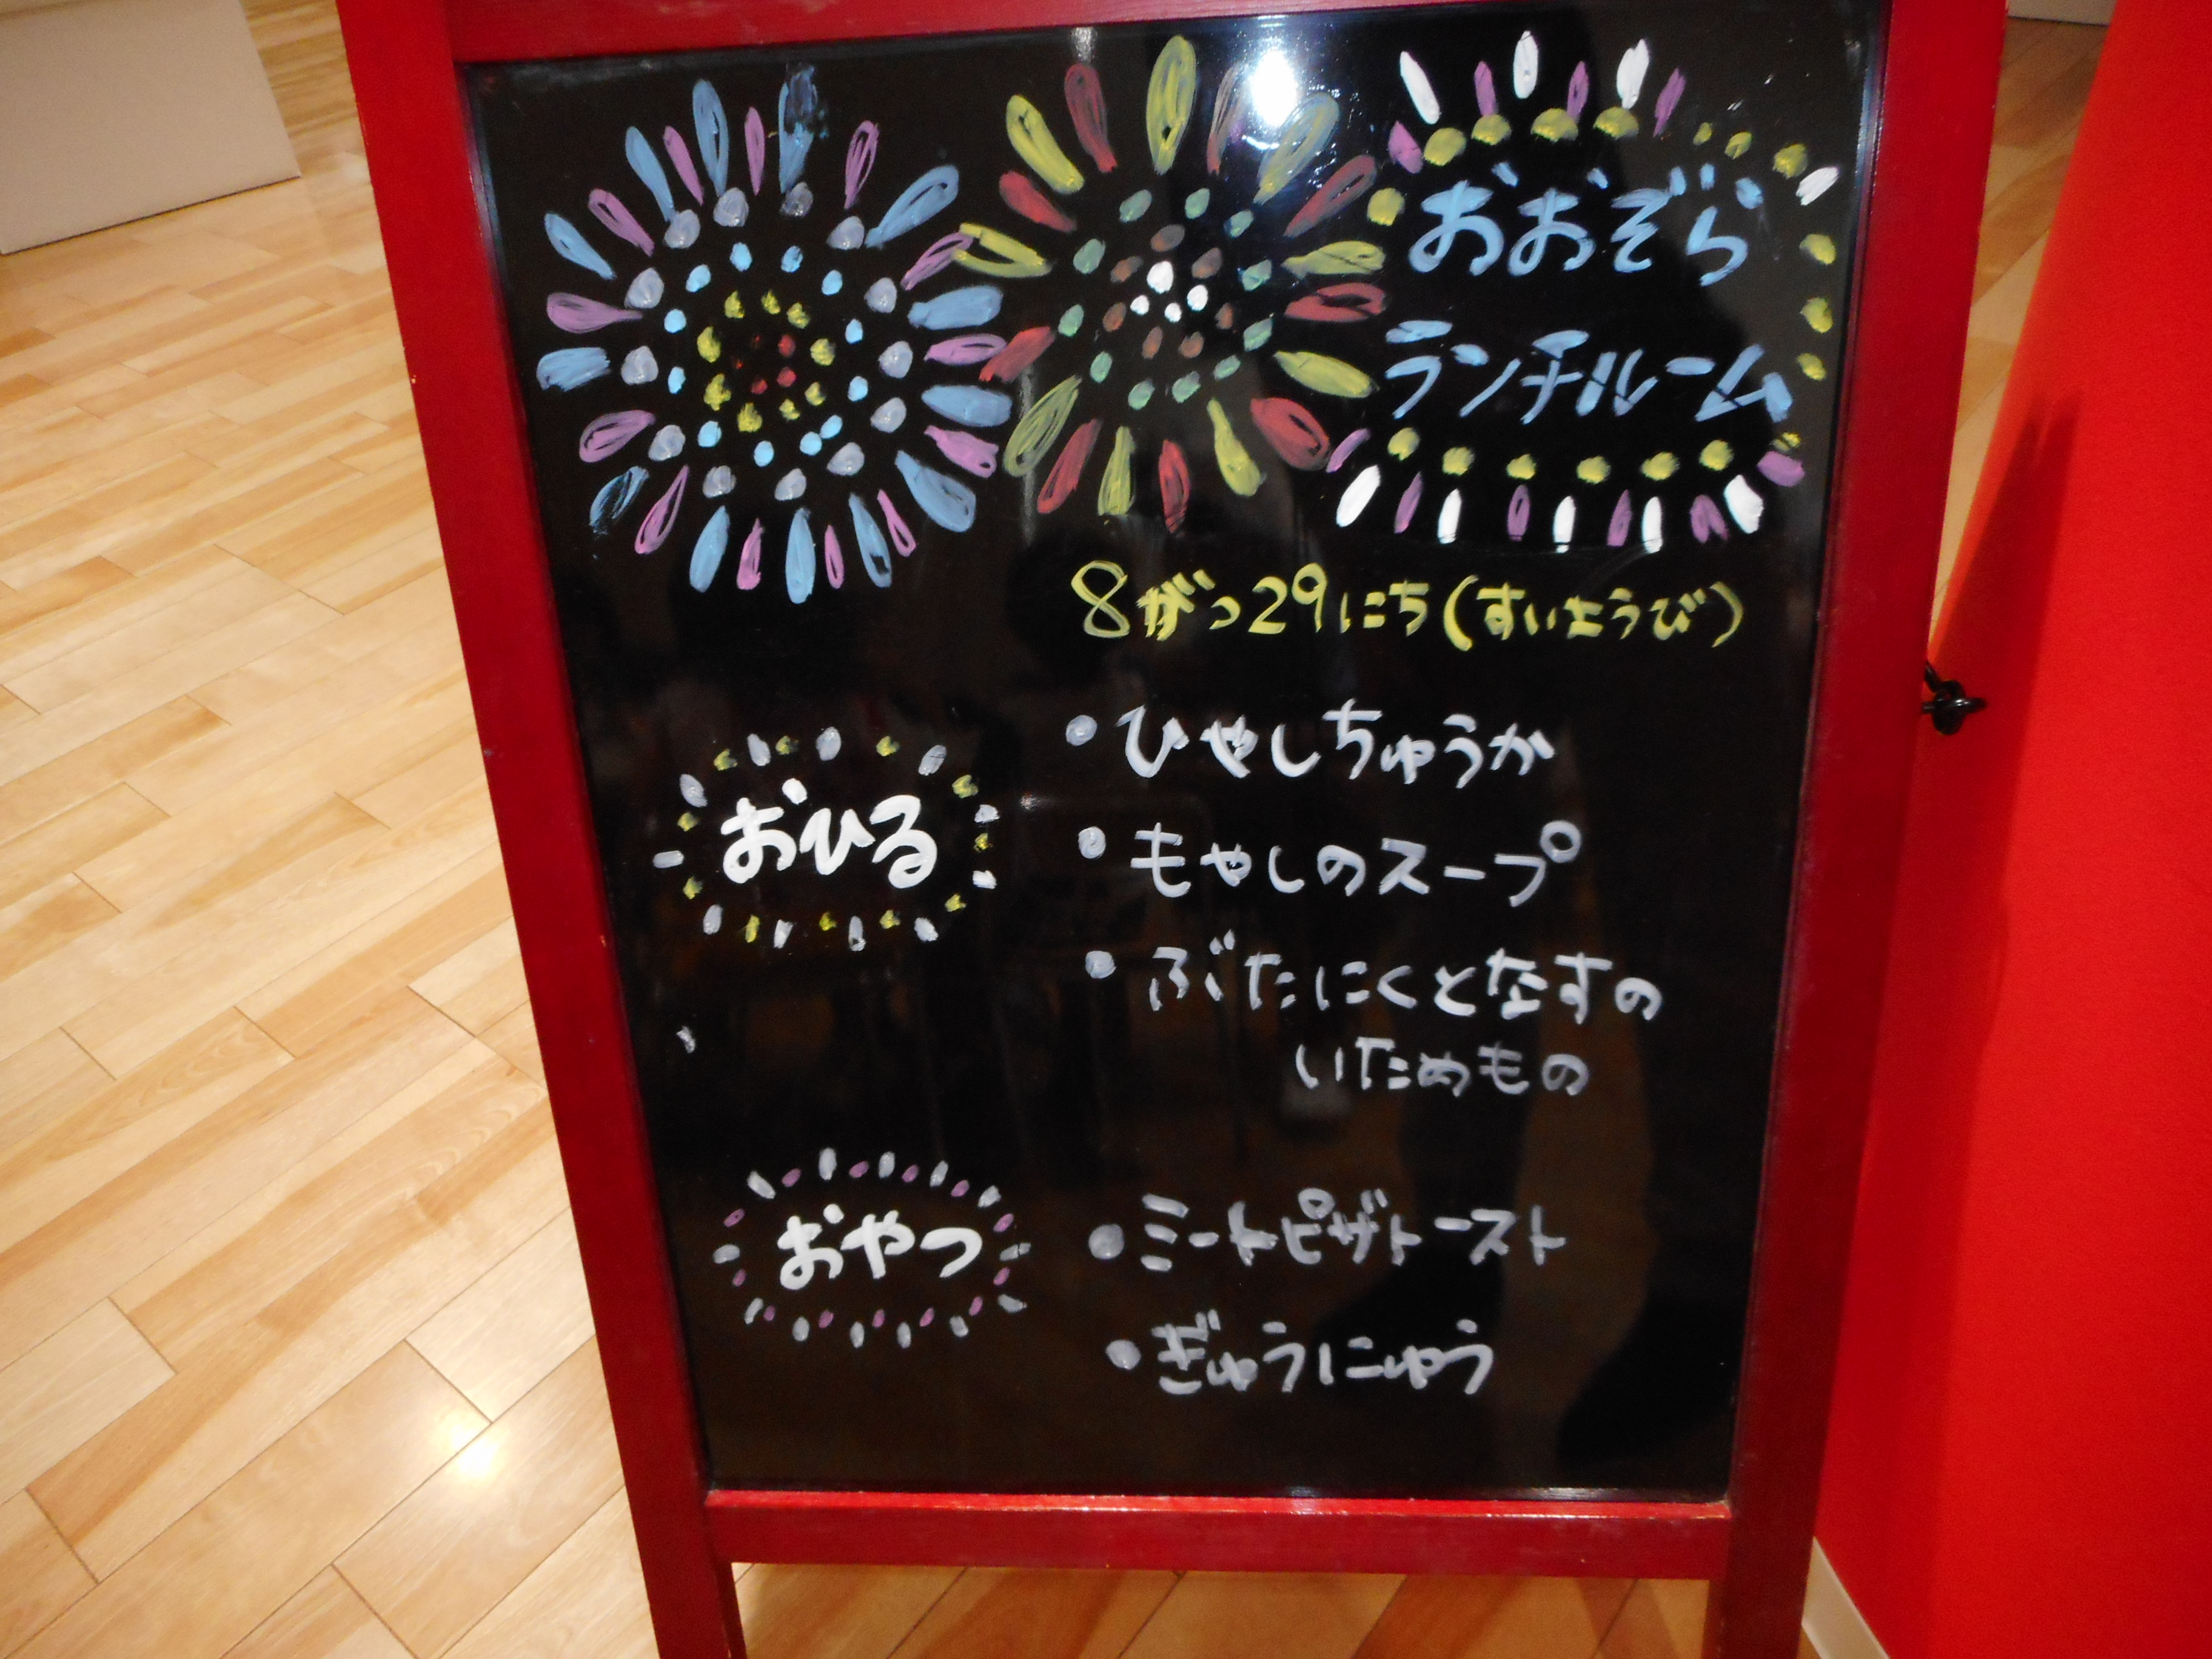 おおぞら
ランチルーム
8がつ29にち(すいようび)
おひる
・ひやしちゅうか
・もやしのスープ
・ぶたにくとなすの
いためもの
おやつ
・ミートピザトースト
・ぎゅうにゅう